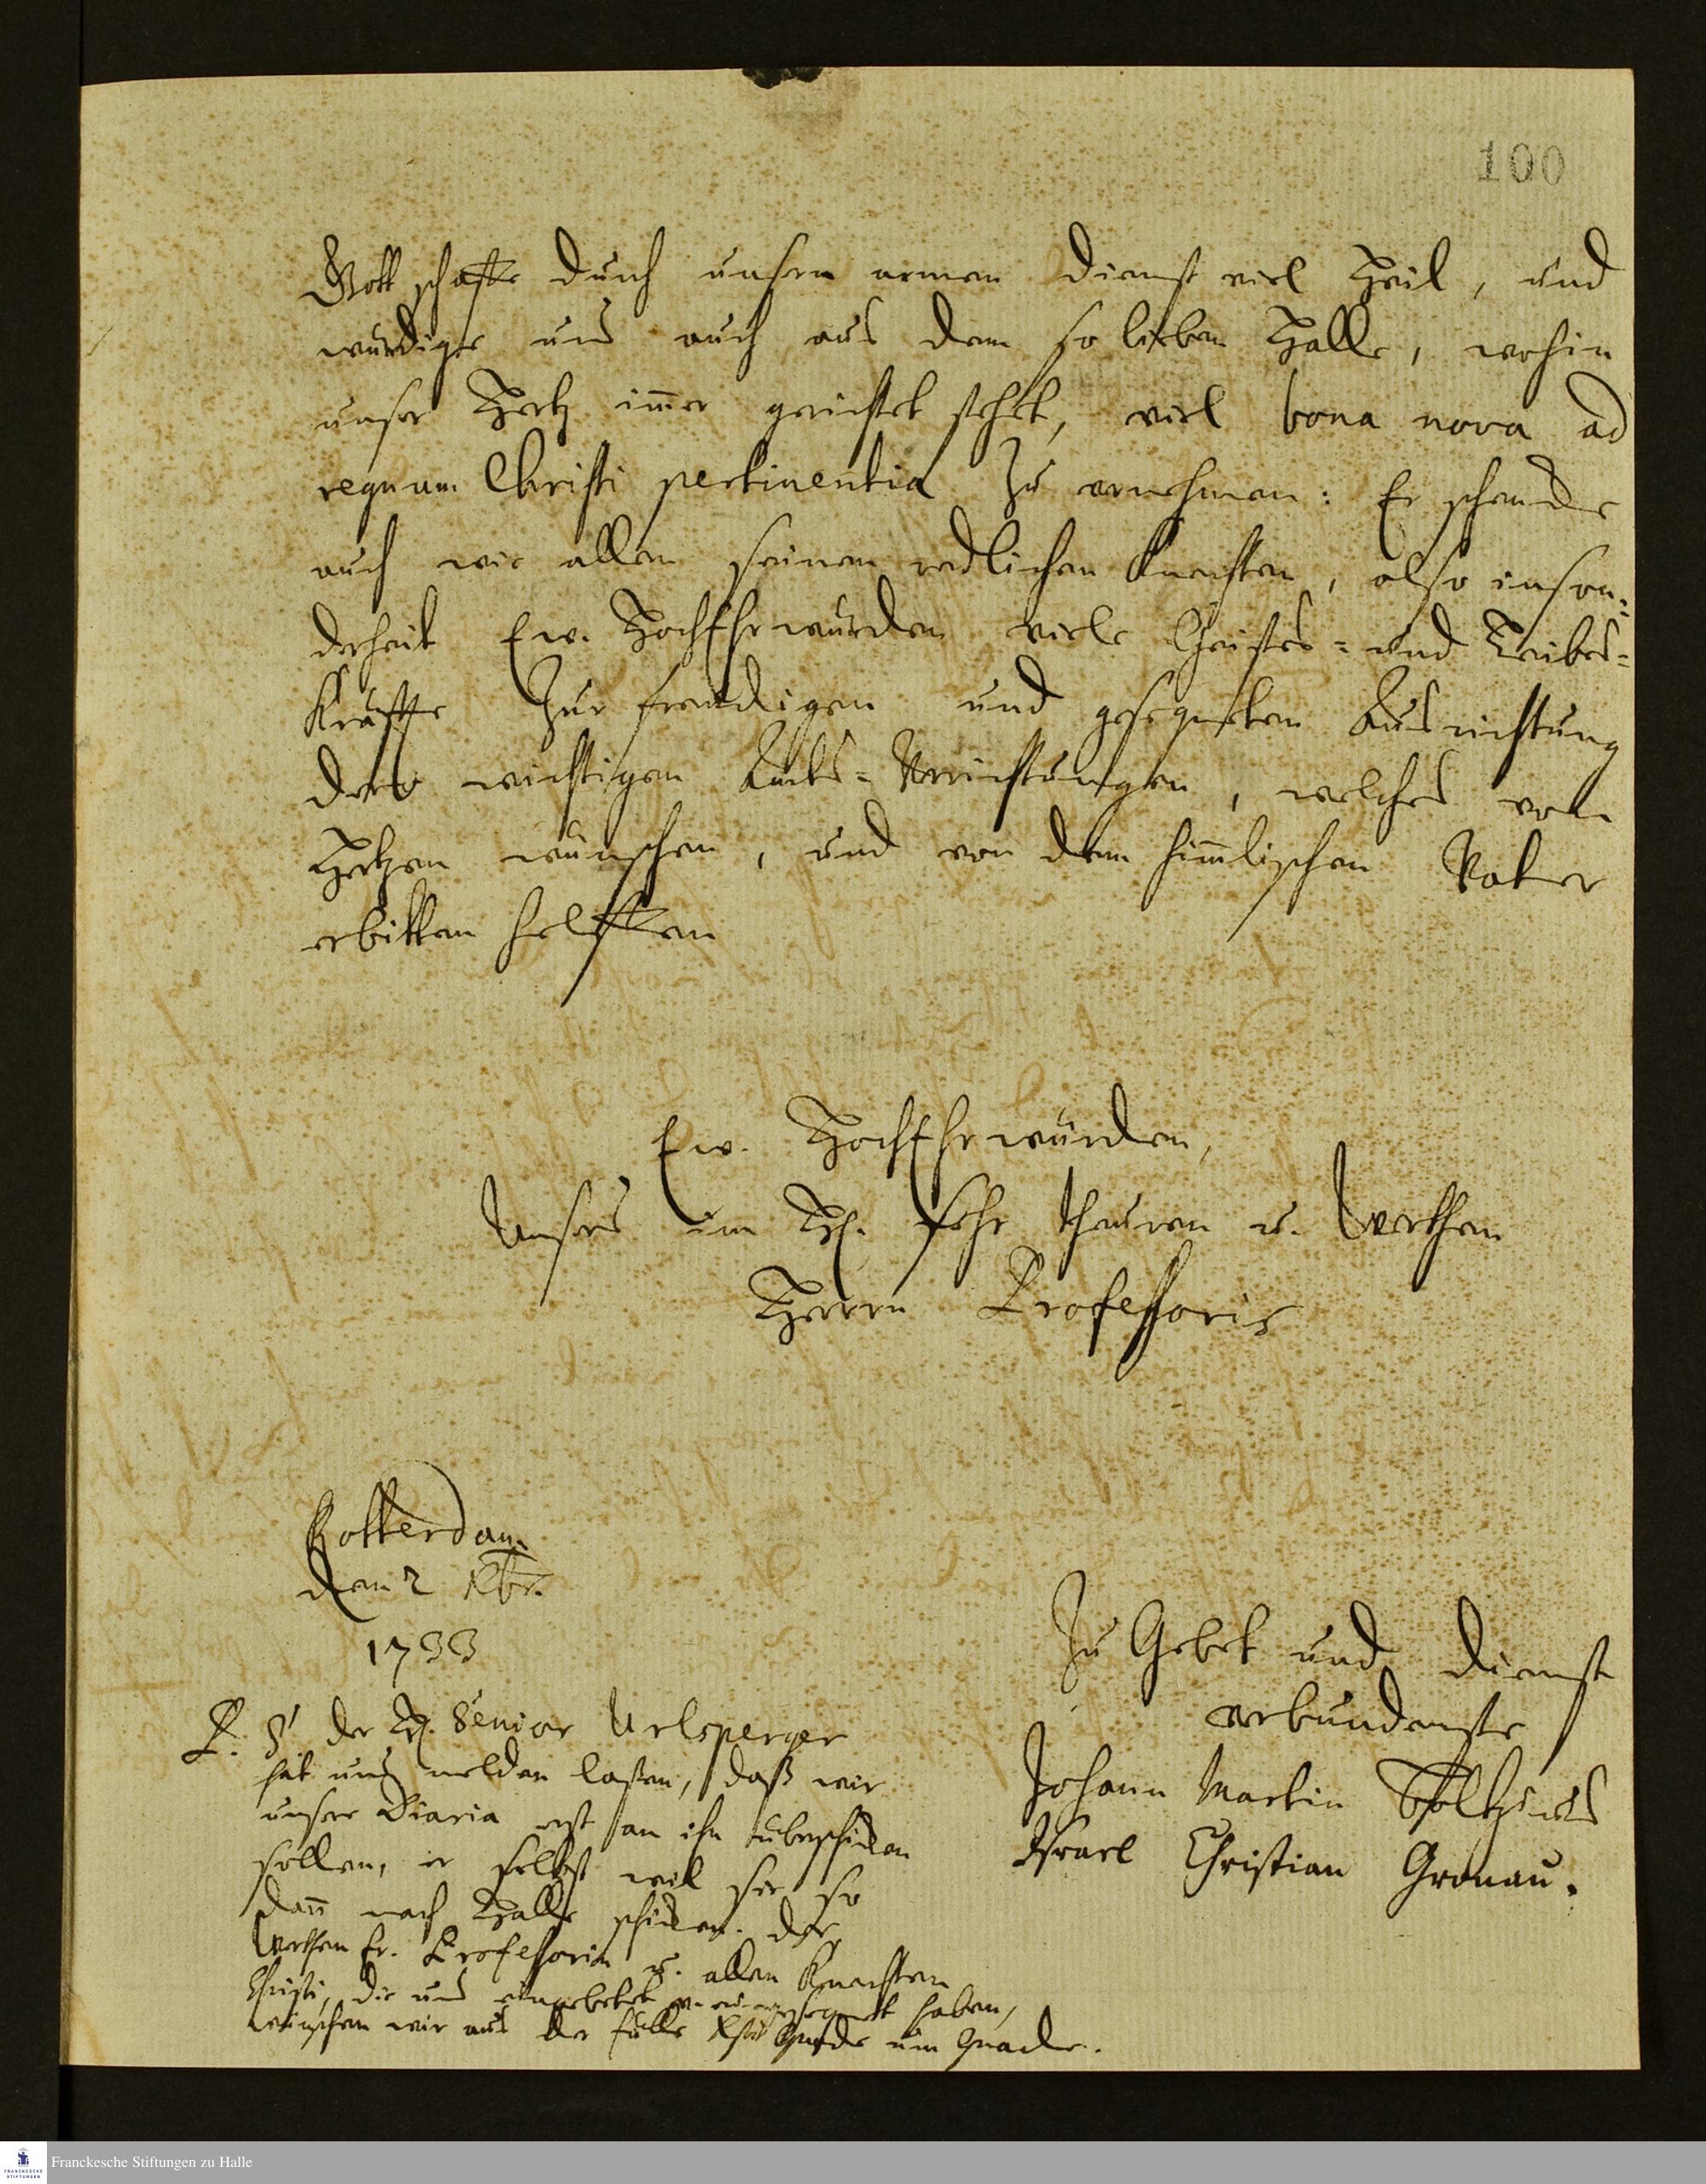 100
Gott schaffe durch unsern armen Dienst viel Heil, und
würdige uns auch aus dem so lieben Halle, wohin
unser Hertz im̅er gerichtet stehet, viel bona nova ad
regnum Christi pertinentia zu vernehmen: Er schencke
auch wie allen seinen redlichen Knechten, also inson=
derheit Ew. HochEhrwürden viele Geistes= und Leibes=
Kräffte zur freudigen und gesegneten Ausrichtung
dero wichtigen Ambts=Verrichtungen, welches von
Hertzen wünschen, und von dem him̅lischen Vater
erbitten helffen
Ew. HochEhrwürden,
Unsers im HE. sehr theuren u. werthen
Herrn Professoris
Rotterdam
den 2 Xbr.
1733
Zu Gebet und Dienst
verbundenste
Johann Martin Boltzius
Israel Christian Gronau.
P. S. der HE. Senior Urlsperger
hat uns melden laßen, daß wir
unsere Diaria erst an ihn überschicken
sollen, er selbst wil sie so
dan̅ nach Halle schicken. Der
werthen Fr. Professorin u. allen Knechten
Christi, die uns eingebetet u. eingesegnet haben,
wünschen wir aus der Fülle Xsti Gnade um Gnade.
Franckesche Stiftungen zu Halle